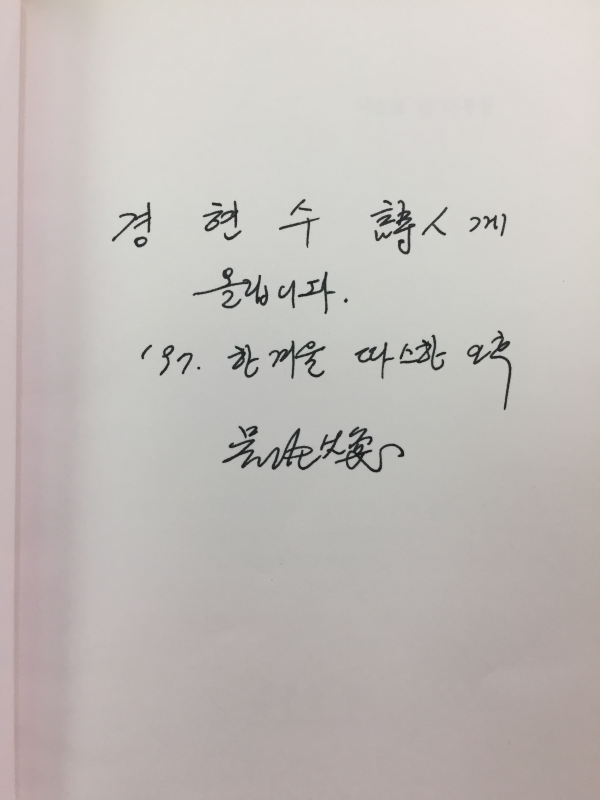 경 현 수 詩人께
올립니다.
'97. 한겨울 따스한 오후